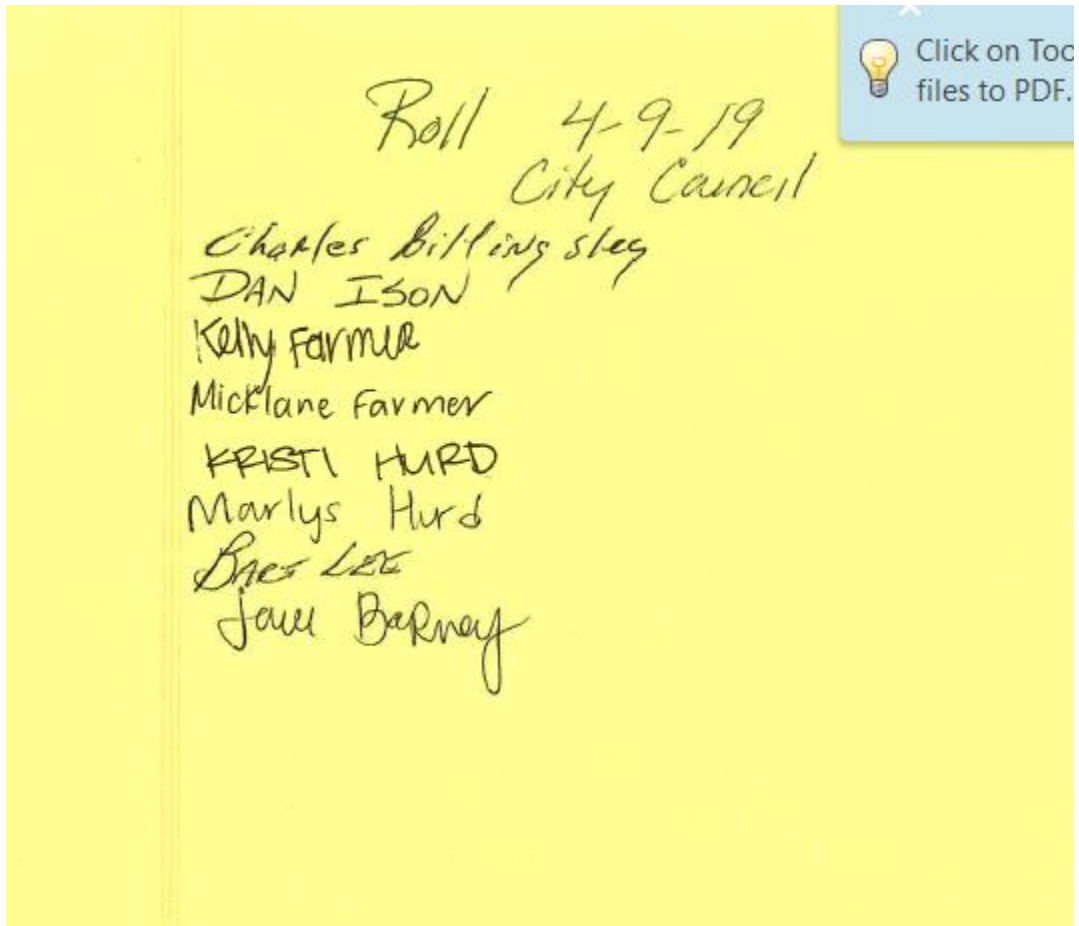 Click on Too
files to PDF.
Roll 4-9-19
City Council
Charles Billingsley
DAN ISON
Kelly Farmer
Micklane Farmer
KRISTI HURD
Marlys Hurd
BART LEE
Barney